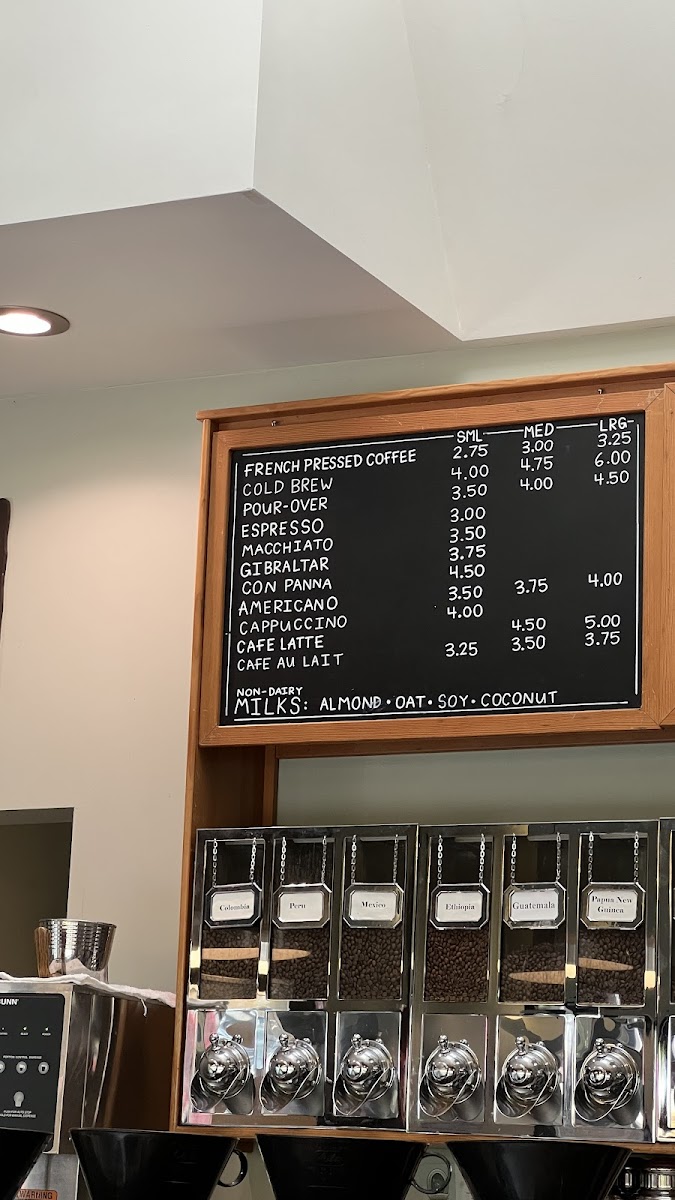 SML MED LRG
FRENCH PRESSED COFFEE 2.75 3.00 3.25
COLD BREW 4.00 4.75 6.00
POUR-OVER 3.50 4.00 4.50
ESPRESSO 3.00
MACCHIATO 3.50
GIBRALTAR 3.75
CON PANNA 4.50
AMERICANO 3.50 3.75 4.00
CAPPUCCINO 4.00
CAFE LATTE 4.50 5.00
CAFE AU LAIT 3.25 3.50 3.75
NON-DAIRY
MILKS: ALMOND • OAT • SOY • COCONUT
Colombia
Peru
Mexico
Ethiopia
Guatemala
Papua New
Guinea
BUNN
WARNING